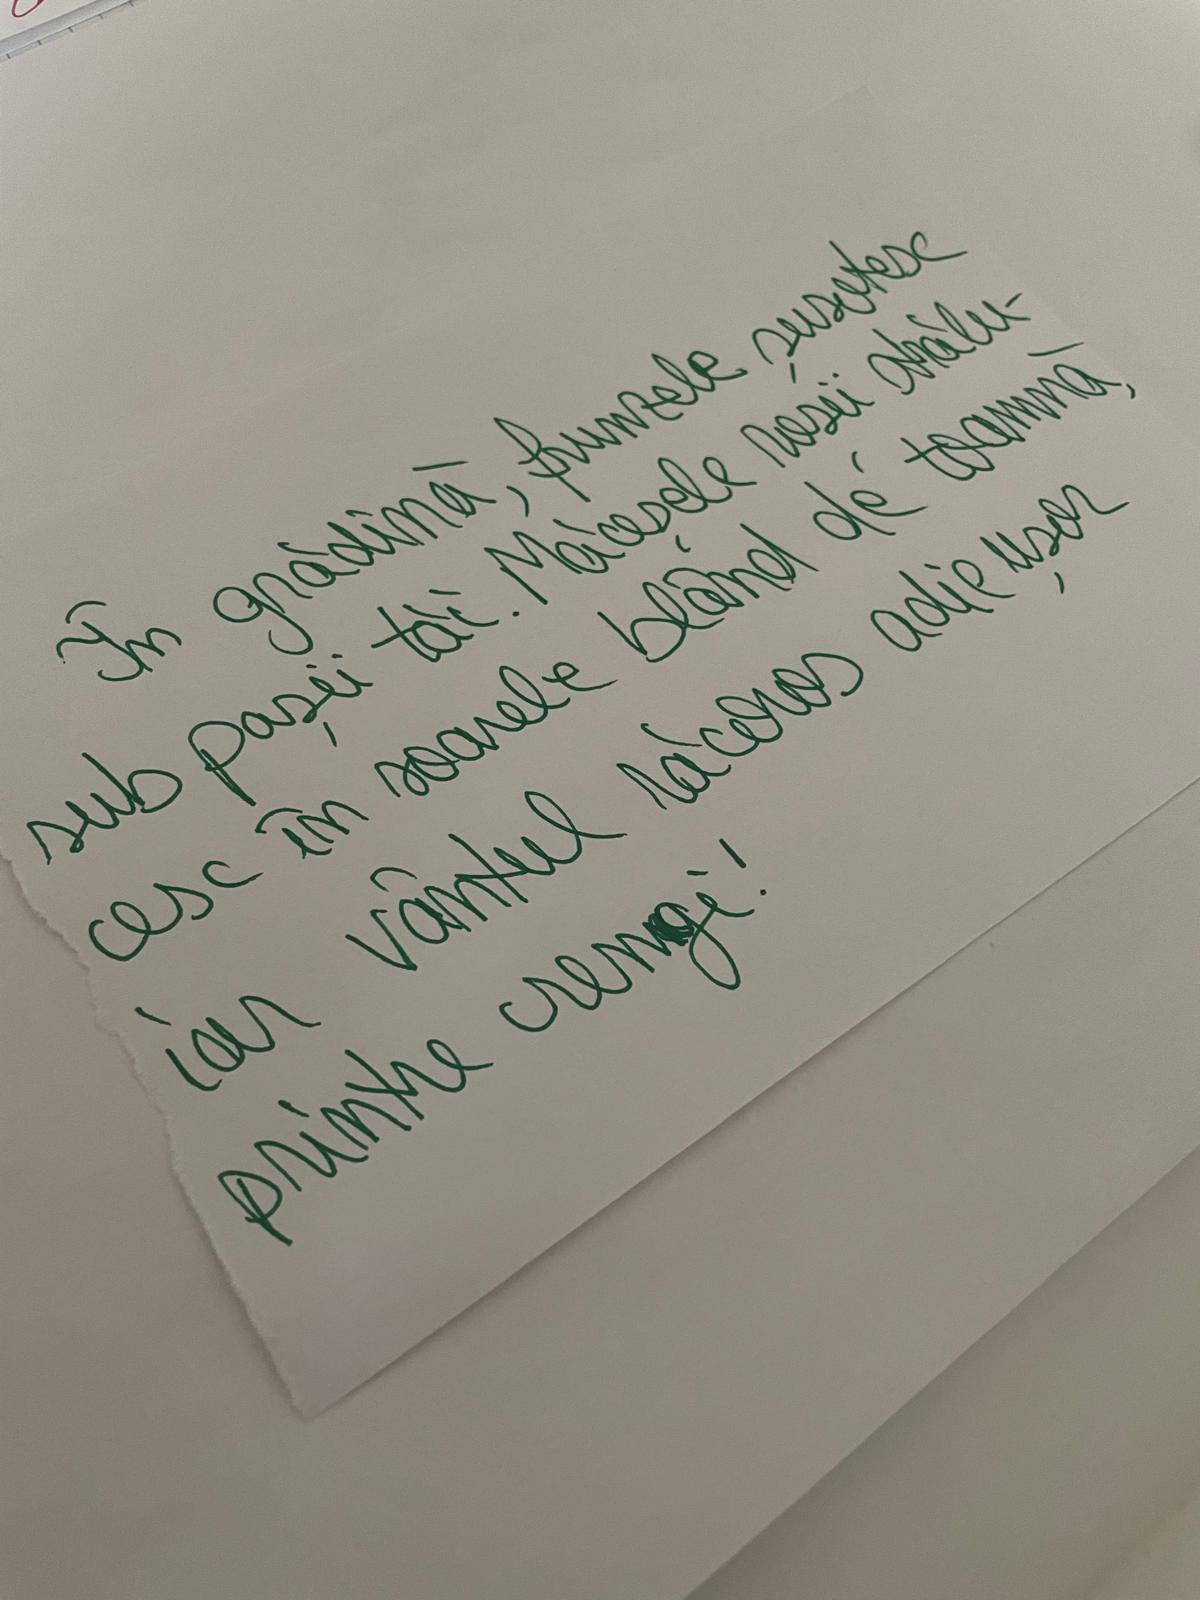 În grădină, frunzele șușotesc
sub pașii tăi. Măceșele roșii strălu-
cesc în soarele blând de toamnă,
iar vântul răcoros adie ușor
printre crengi!